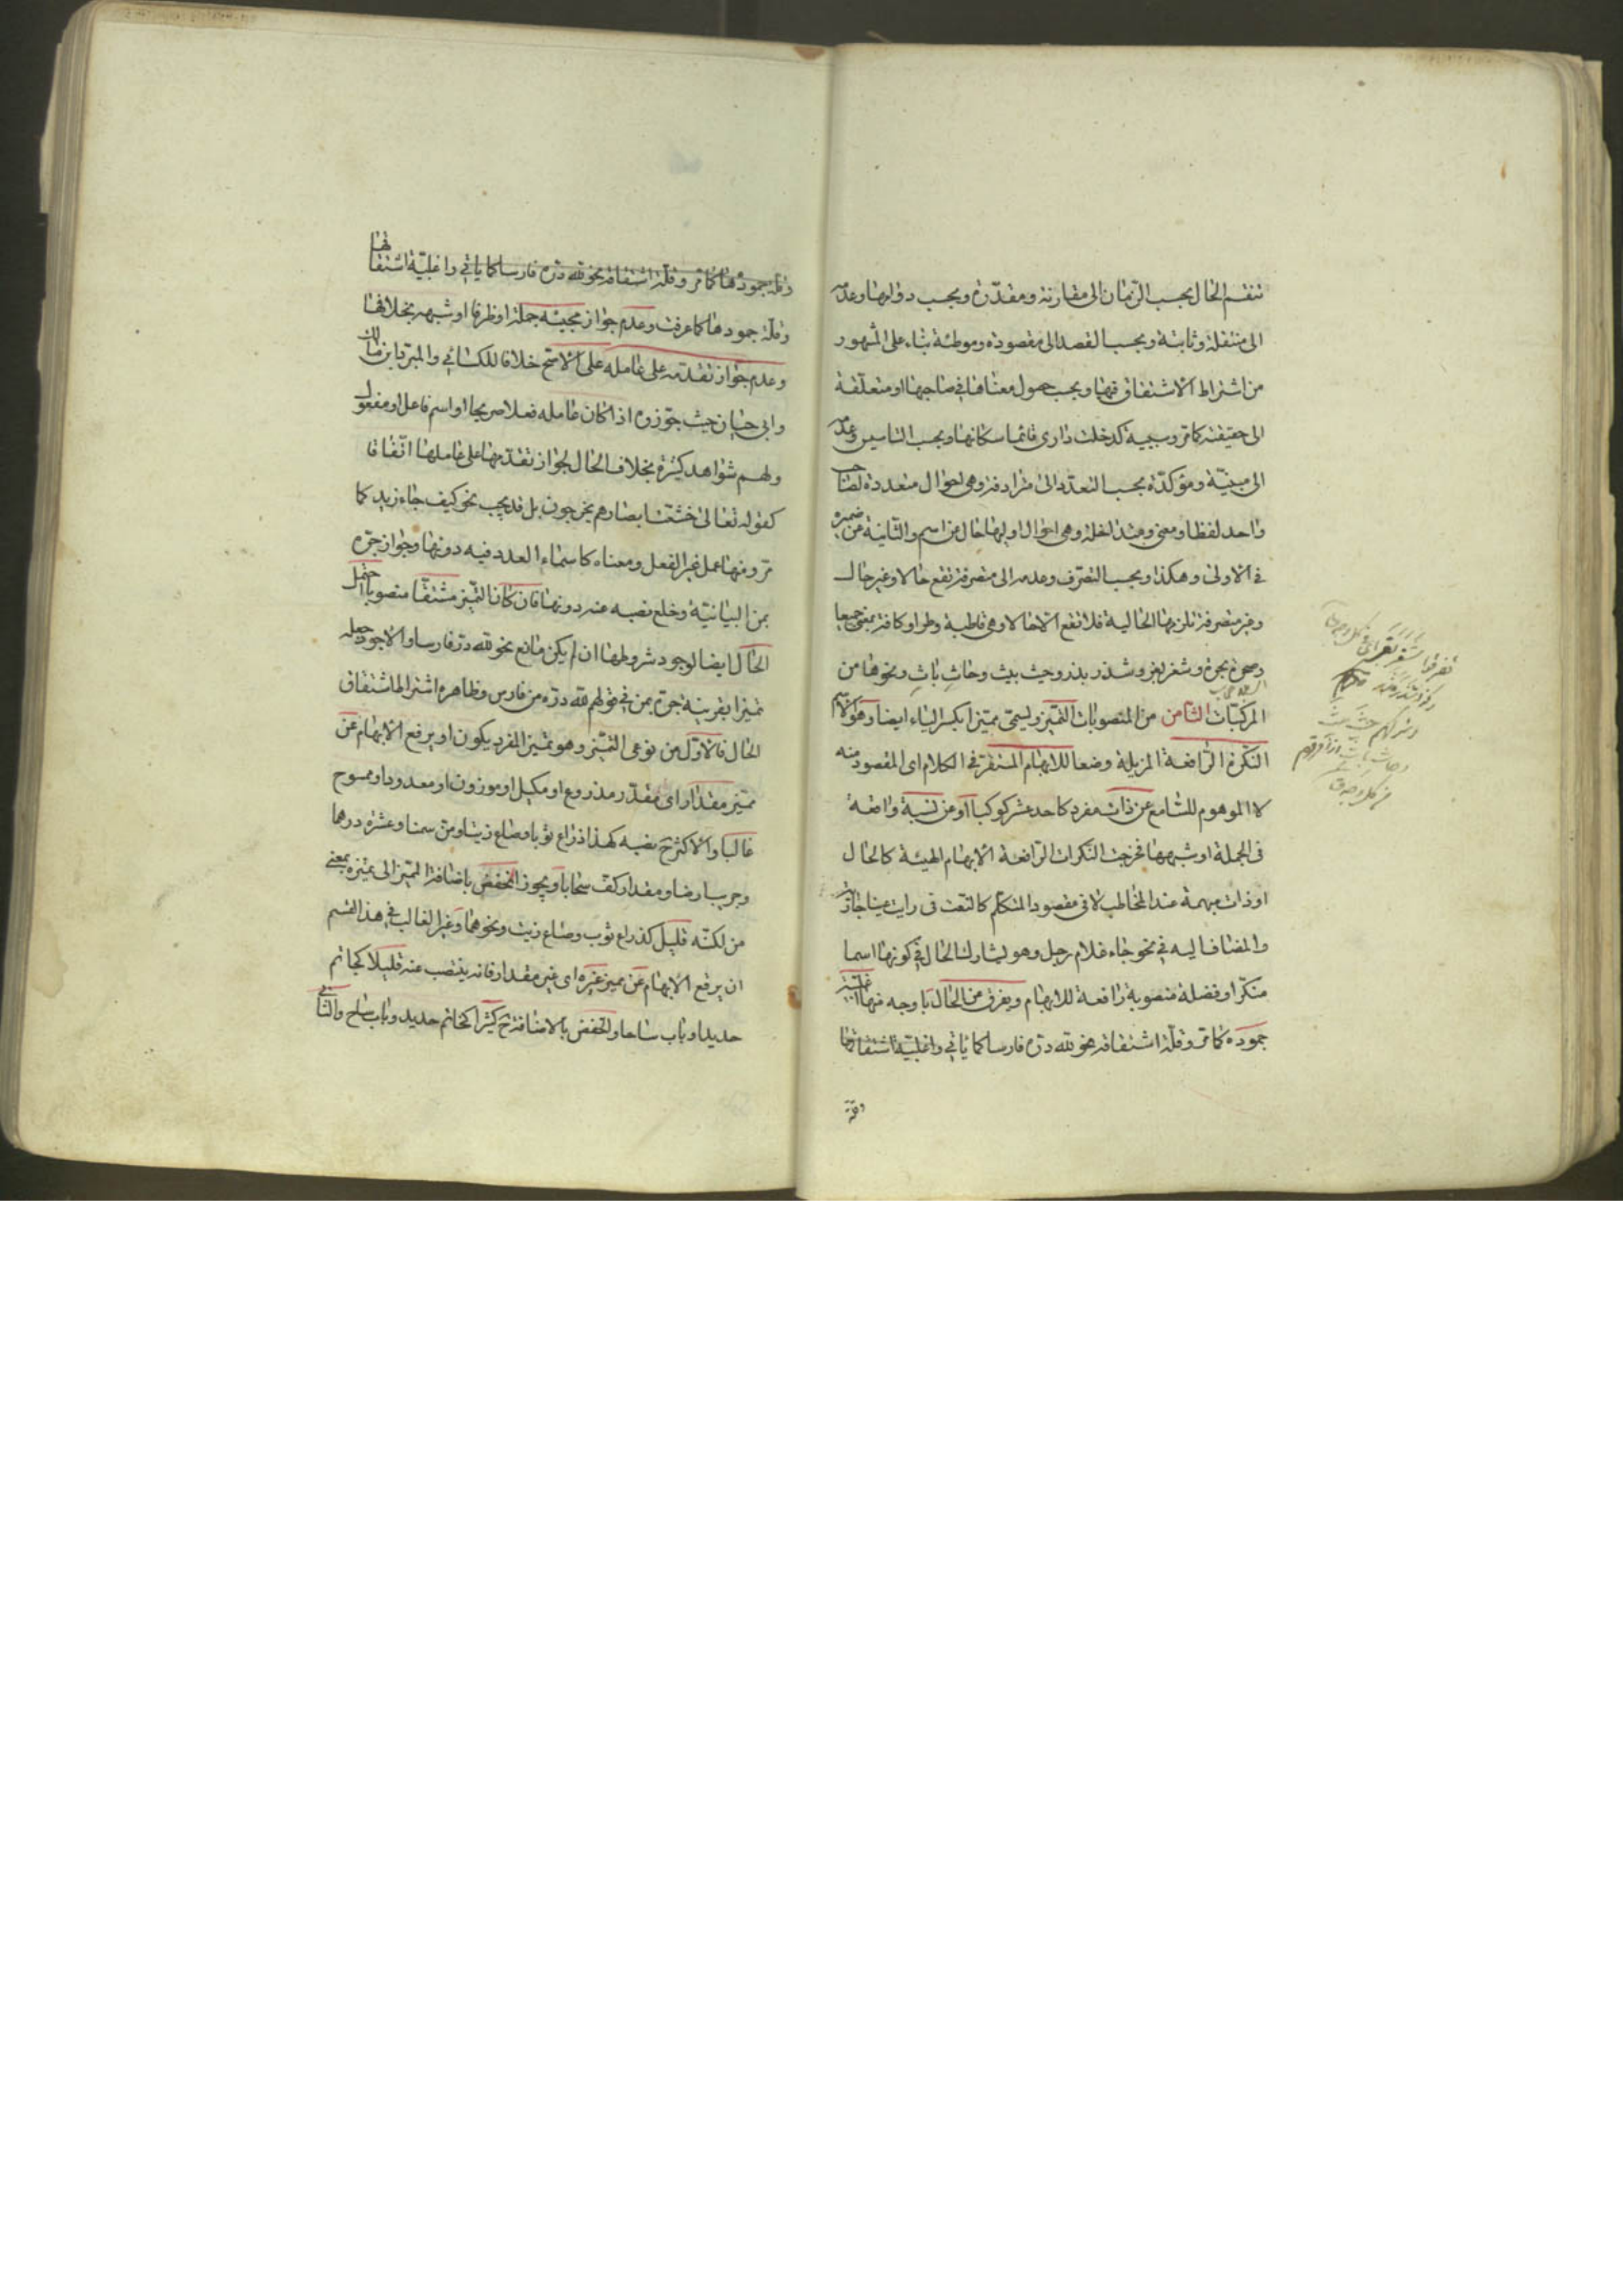 تنقسم الحال بحسب الزمان الى مقارنة ومقدّرة وبحسب دوامها وعدمه
الى منتقلة وثابتة وبحسب القصد الى مقصودة وموطئة بناء على المشهور
من اشتراط الاشتقاق فيها وبحسب حصول معناها في صاحبها او متعلقه
الى حقيقية كما مر وسببية كدخلت داري قائما سكانها وبحسب التاسيس وعدمه
الى مبنيّة ومؤكدّة بحسب التعدّد الى مترادفة وهى احوال متعددة لصاحب
واحد لفظا ومعنى ومتداخلة وهى احوال اوليها حال من اسم والثانية من ضميره
في الاولى وهكذا وبحسب التصرّف وعدمه الى متصرفة تقع حالا وغير حال
وغير متصرفة تلزمها الحالية فلا تقع الا حالا وهى قاطبة وطرا وكافة بمعنى جميعا
وصحرة بحرة وشغر بغر وشذر بذر وحيث بيث وحاثِ باثِ ونحوها من
المركبّات الثامن من المنصوبات التميّز ويسمّى مميّزا بكسر الياء ايضا وهو الاسم
النكرة الرّافعة المزيلة وضعا للابهام المستقر في الكلام اى المقصود منه
لا الموهوم للسّامع عن ذات مفرد كاحد عشر كوكبا او عن نسبة واقعة
فى الجملة او شبهها فخرجت النكرات الرّافعة الابهام الهيئة كالحال
او ذات مبهمة عند المخاطب لا فى مقصود المتكلّم كالنعت فى رايت عينا جارية
والمضاف اليه في نحو جاء غلام رجل وهو يشارك الحال في كونها اسما
منكّرا وفضلة منصوبة رافعة للابهام ويفرق من الحال باوجه منها اغلبيّة
جموده كما مر وقلّة اشتقاقه نحو لله درّه فارسا كما ياتي واغلبيّة اشتقاقها
وقلة
وقلة جمودها كما مر وقلّة اشتقاقه نحو لله درّه فارسا كما ياتي واغلبيّة اشتقاقها
وقلّة جمودها كما عرفت وعدم جواز مجيئه جملة او ظرفا او شبهه بخلافها
وعدم جواز تقدّمه على عامله على الاصح خلافا للكسائي والمبرّد وابن مالك
وابى حيان حيث جوّزوه اذا كان عامله فعلا صريحا او اسم فاعل او مفعول
ولهم شواهد كثيرة بخلاف الحال لجواز تقدّمها على عاملها اتّفاقا
كقوله تعالى خشّعا ابصارهم يخرجون بل قد يجب نحو كيف جاء زيد كما
مرّ ومنها عمل غير الفعل ومعناه كاسماء العدد فيه دونها وجواز جرّه
بمن البيانيّة وخلع نصبه عنه دونها فان كان التميّز مشتقّا منصوبا احتمل
الحال ايضا لوجود شروطها ان لم يكن مانع نحو لله درّه فارسا والاجود جعله
تميزا بقرينة جرّه بمن في قولهم لله درّه من فارس وظاهره اشتراط اشتقاق
الحال فالاوّل من نوعى التميّز وهو تميز المفرد يكون او يرفع الابهام عن
مميّز مقدار اى مقدّر مذروع او مكيل او موزون او معدود او ممسوح
غالبا والاكثر ح نصبه كهذا ذراع ثوبا وصاع زيتا ومن سمنا وعشرة درهما
وجريب ارضا ومقدار كفّ سحابا ويجوز الخفض باضافة المميّز الى مميّزه بمعنى
من لكنّه قليل كذراع ثوب وصاع زيت ونحوهما وغير الغالب في هذا القسم
ان يرفع الابهام عن مميز غيره اى غير مقدار فانه ينتصب عنه قليلا كخاتم
حديدا وباب ساجا والخفض بالاضافة ح كثيرا كخاتم حديد وباب ساج والثاني